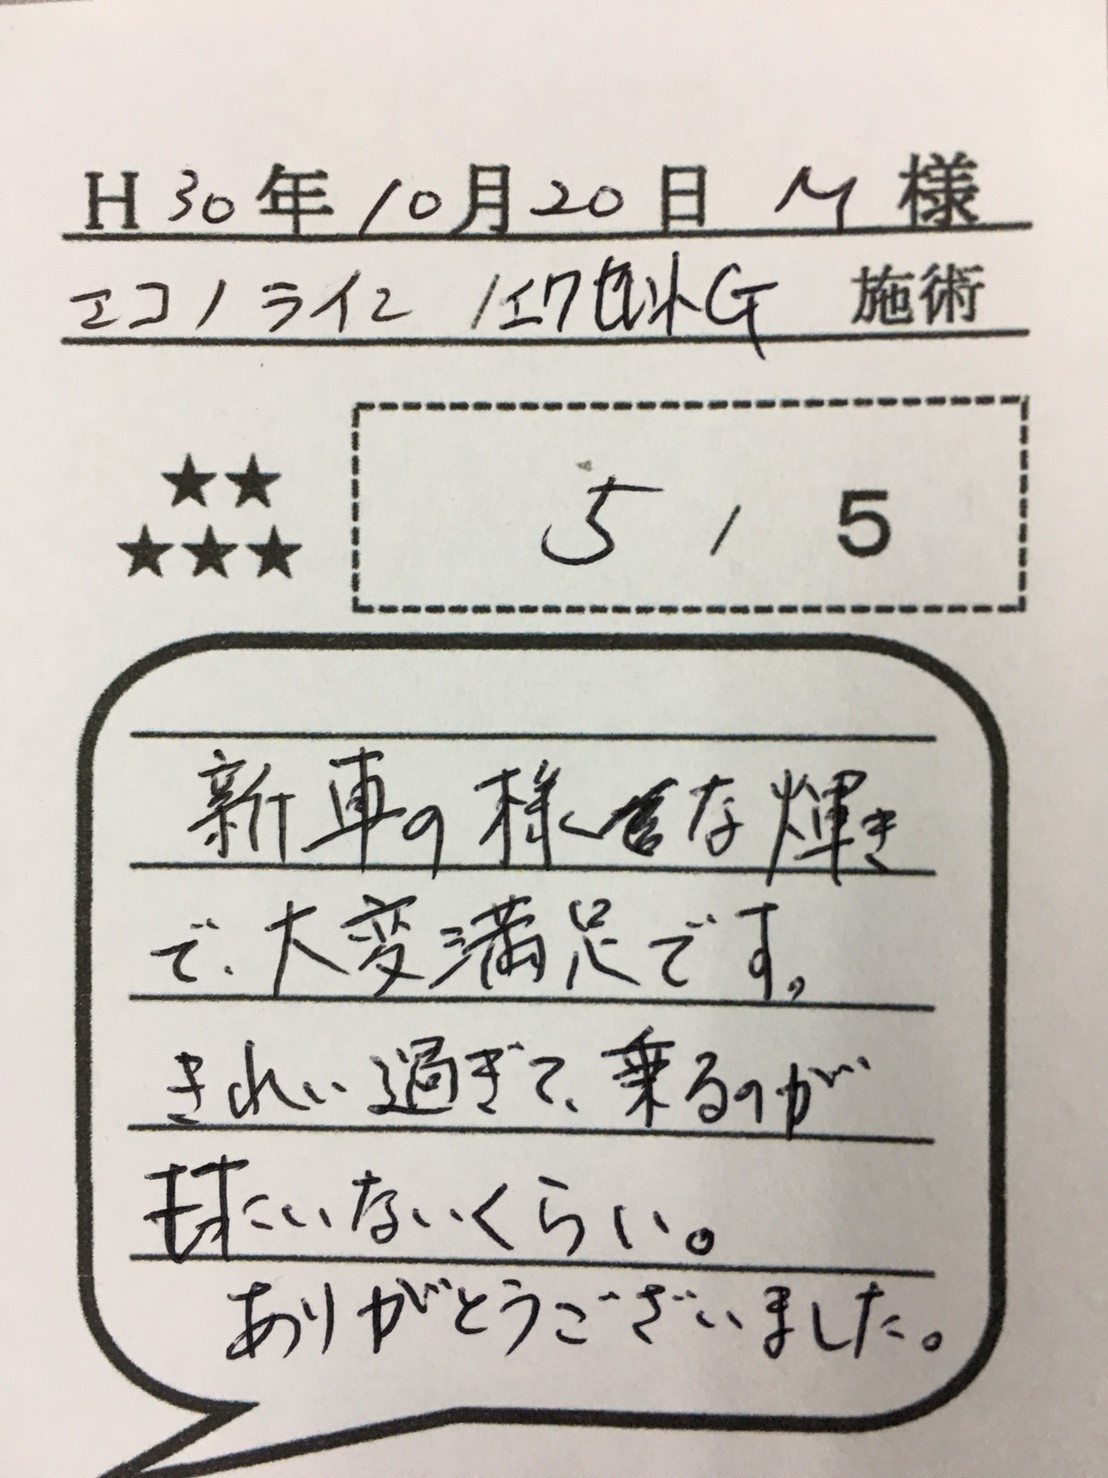 H30年10月20日 M 様
エコノライン G 施術
★★
★★★
5 / 5
新車の様な輝き
で、大変満足です。
きれい過ぎて、乗るのが
いないくらい。
ありがとうございました。